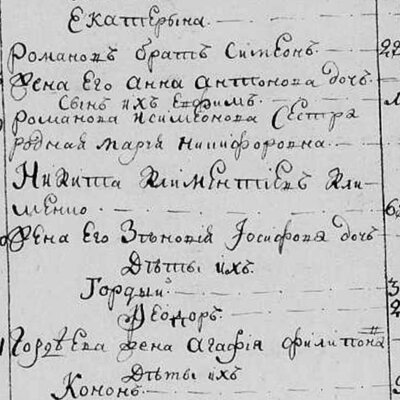 Екатерына
Романовъ братъ Симеонъ 22
Жена Его Анна Антонова дочь
Сынъ ихъ Евфимъ
Романова и Симеонова Сестра
родная Марія Никифоровна
Никита Климентіевъ Кли-
менко 6
Жена Его Зѣновія Іосифова дочь
Дѣты ихъ
Гордый 3
Ѳеодоръ 2
Гордѣева жена Агафія Филипова
Дѣты ихъ
Кононъ